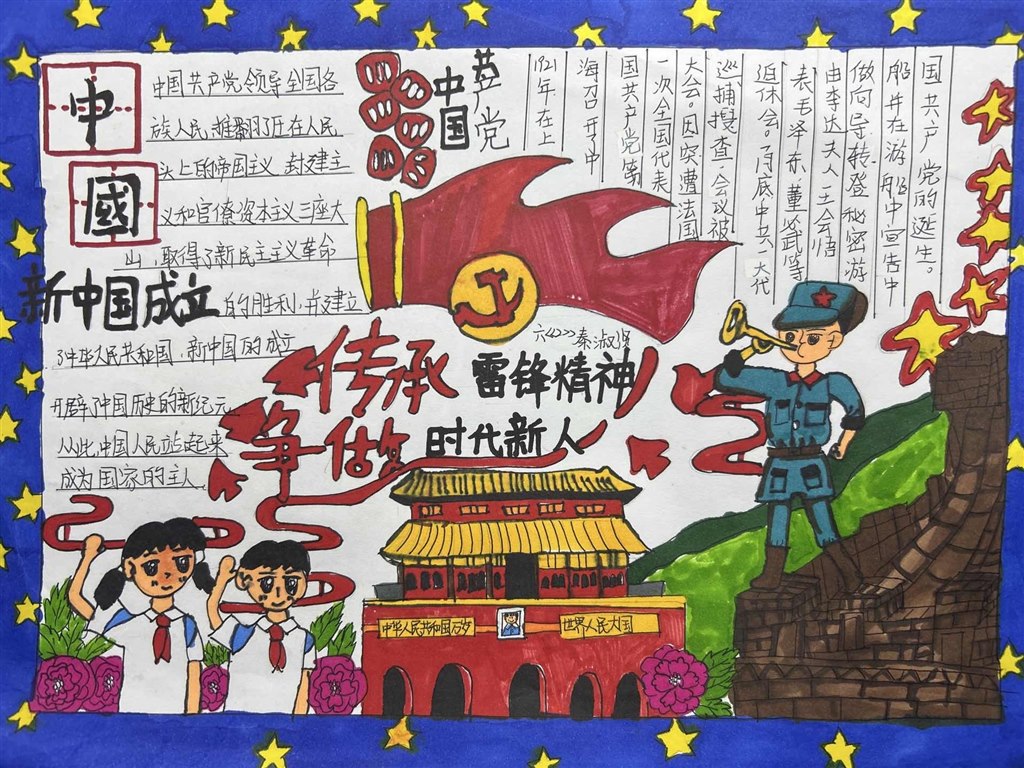 中
國
中国共产党领导全国各
族人民,推翻了压在人民
头上的帝国主义,封建主
义和官僚资本主义三座大
山,取得了新民主主义革命
新中国成立
的胜利,并建立
了中华人民共和国,新中国的成立
开辟了中国历史的新纪元
从此,中国人民站起来
成为国家的主人,
中国
共产党
1921年在上
海召开了中
国共产党第
一次全国代表
大会。因突遭法国
巡捕搜查,会议被
迫休会。7月底中共一大代
表毛泽东董必武等
由李达夫人王会悟
做向导转登秘密游
船并在游船中宣告中
国共产党的诞生。
秦淑
传承 雷锋精神
争做 时代新人
中华人民共和国万岁
世界人民大国